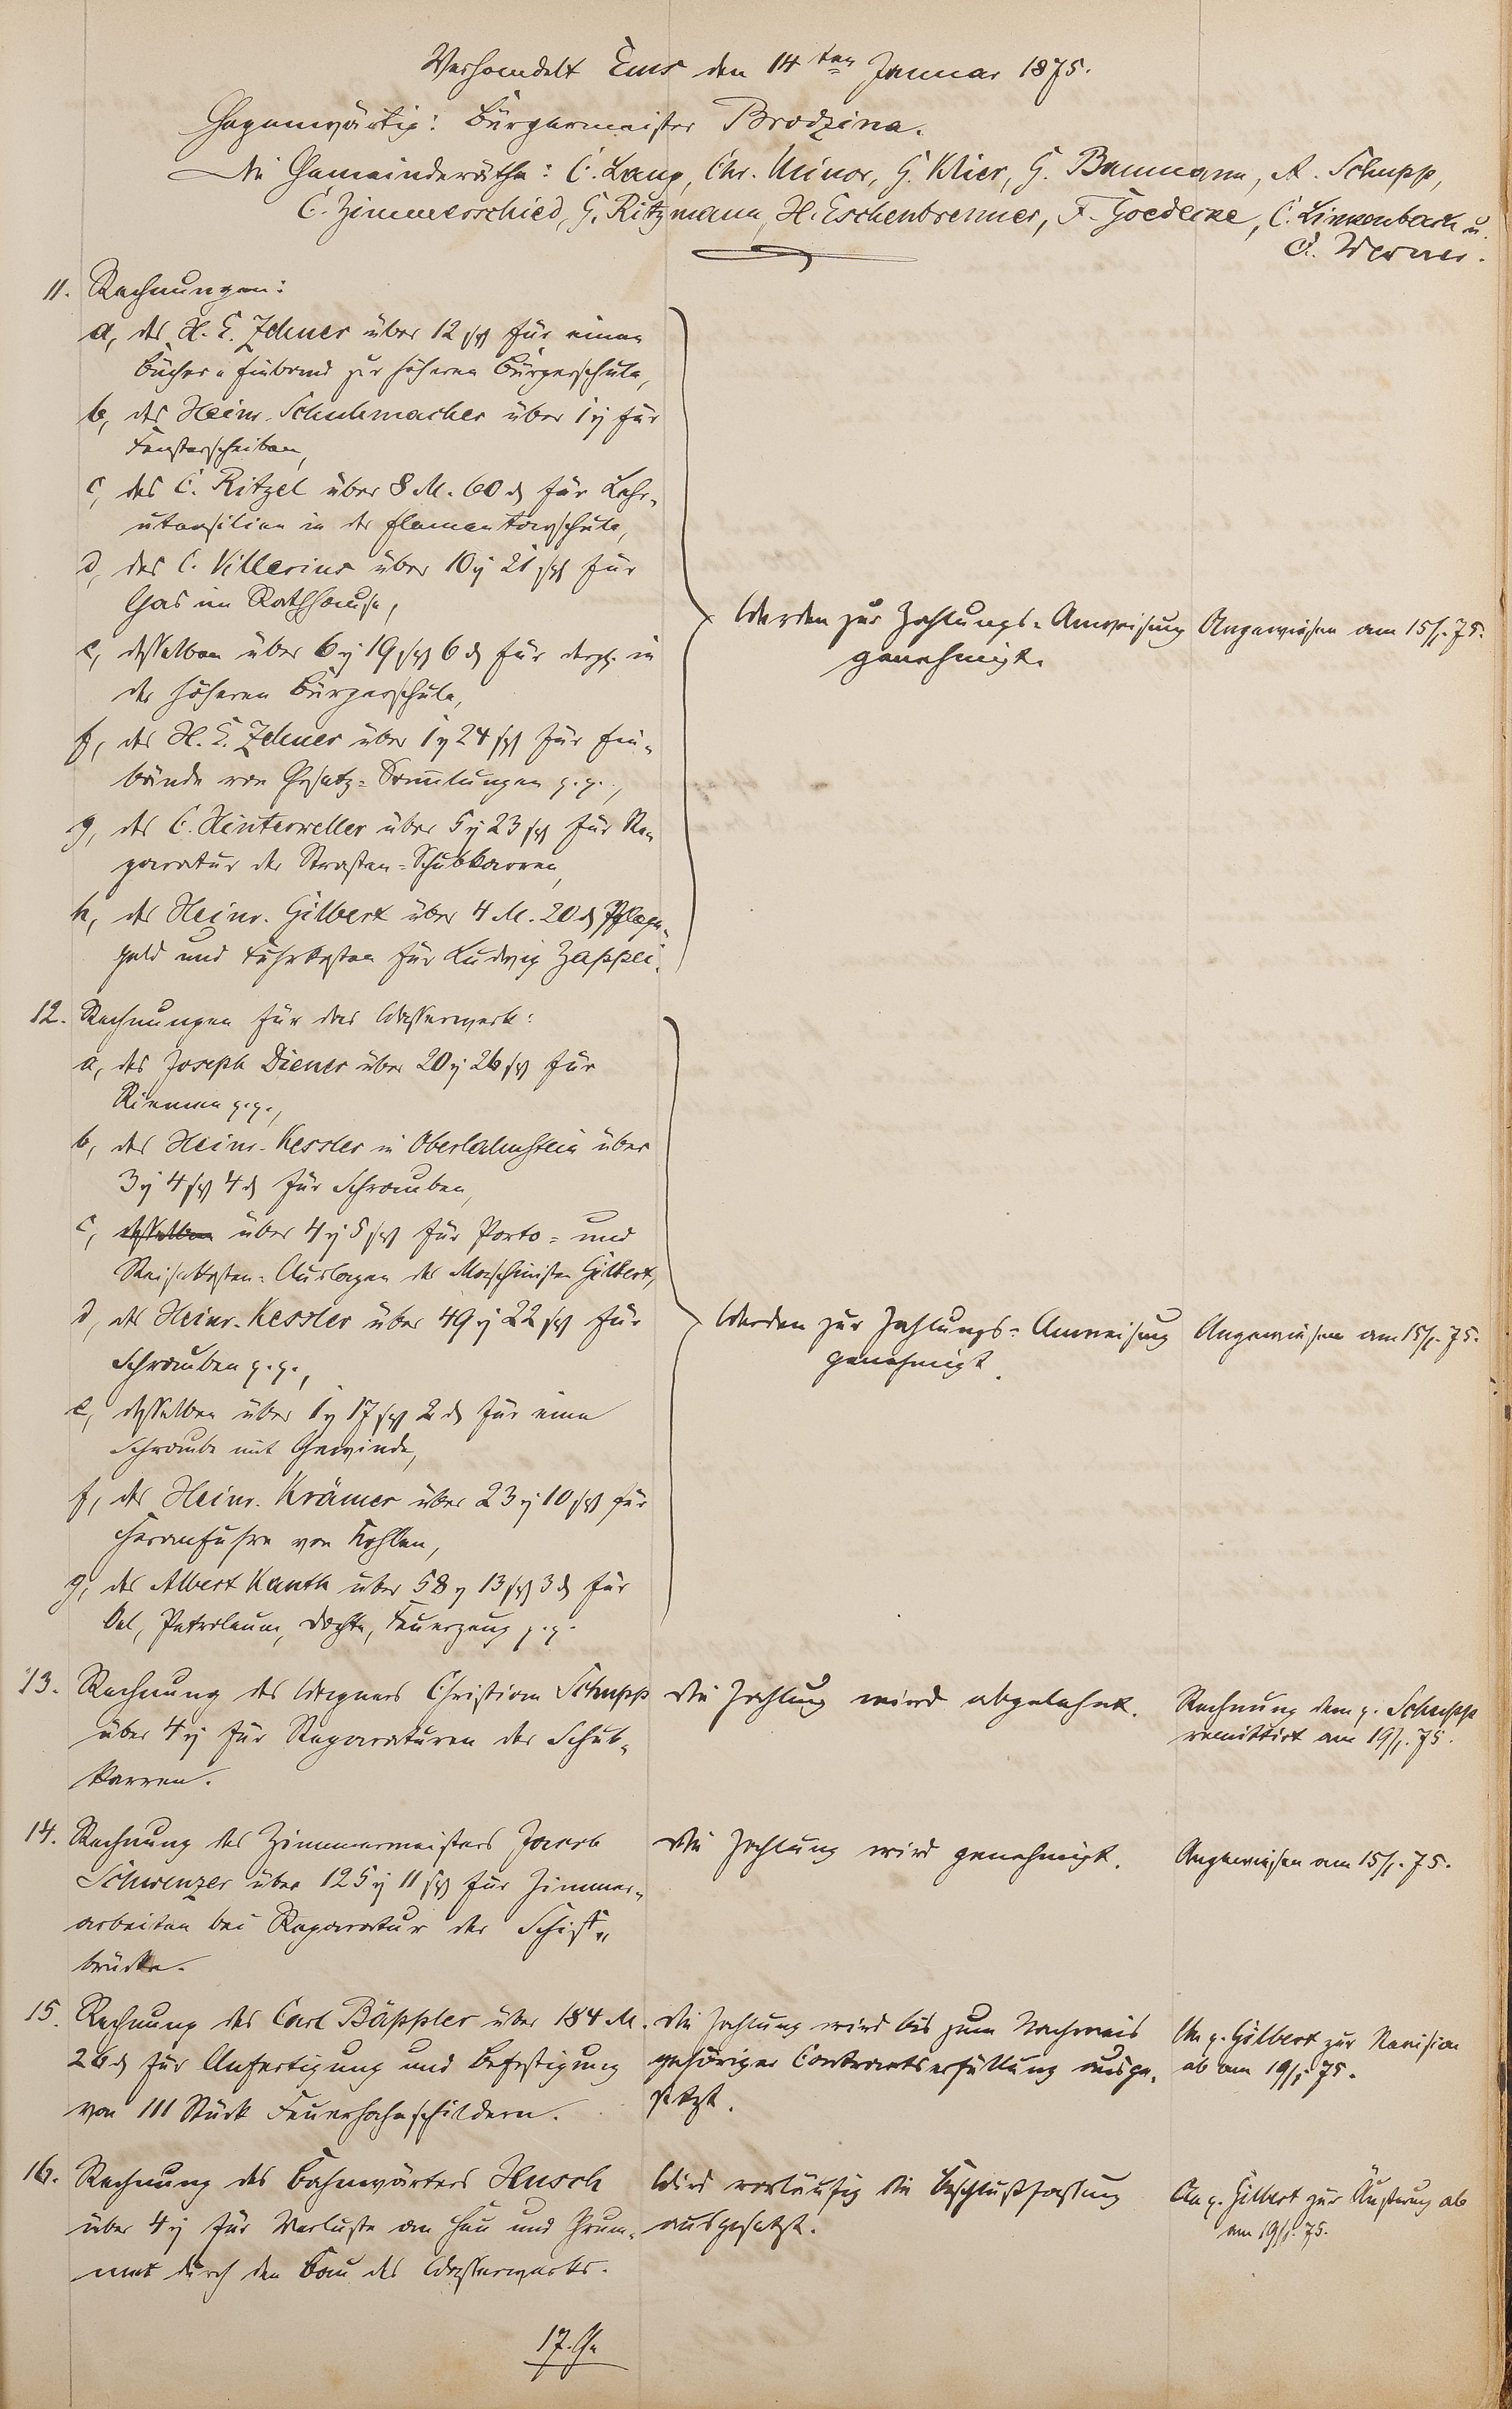 Verhandelt Ems den 14ten Januar 1875.
Gegenwärtig: Bürgermeister Brodzina.
Die Gemeinderäthe: C. Lang, Chr. Minor, G. Klier, G. Baumann, A. Schupp,
C. Zimmerschied, G. Ritzmann, H. Eschenbrenner, F. Goedecke, C. Linkenbach u.
A. Werner.
11. Rechnungen:
a, des H. E. Zehner über 12 sgr für einen
Bücher-Einband zur höheren Bürgerschule,
b, des Heinr. Schuhmacher über 1 rl für
Fensterscheiben,
c, des C. Ritzel über 8 M. 60 d für Lehr-
utensilien in der Elementarschule,
d, des C. Villerius über 10 rl 21 sgr für
Gas im Rathhause,
e, desselben über 6 rl 19 sgr 6 d für dergl. in
der höheren Bürgerschule,
f, des H. E. Zehner über 1 rl 24 sgr für Ein-
bände von Gesetz-Sammlungen p.p.,
g, des C. Hinterweller über 5 rl 23 sgr für Re-
paratur der Straßen-Schubkarren,
h, des Heinr. Gilbert über 4 M. 20 d Pflege-
geld und Fuhrkosten für Ludwig Zappei.
Werden zur Zahlungs-Anweisung
genehmigt.
Angewiesen am 15/1. 75.
12. Rechnungen für das Wasserwerk:
a, des Joseph Diener über 20 rl 26 sgr für
Riemen p.p.,
b, des Heinr. Kessler in Oberlahnstein über
3 rl 4 sgr 4 d für Schrauben,
c, desselben über 4 rl 5 sgr für Porto- und
Reisekosten-Auslagen des Maschinisten Gilbert,
d, des Heinr. Kessler über 49 rl 22 sgr für
Schrauben p.p.,
e, desselben über 1 rl 17 sgr 2 d für eine
Schraube mit Gewinde,
f, des Heinr. Krämer über 23 rl 10 sgr für
Heranfuhre von Kohlen,
g, des Albert Kauth über 58 rl 13 sgr 3 d für
Oel, Petroleum, Dochte, Feuerzeug p.p.
Werden zur Zahlungs-Anweisung
genehmigt.
Angewiesen am 15/1. 75.
13. Rechnung des Wagners Christian Schupp
über 4 rl für Reparaturen der Schub-
karren.
Die Zahlung wird abgelehnt.
Rechnung dem p. Schupp
remittirt am 19/1. 75.
14. Rechnung des Zimmermeisters Jacob
Schwenzer über 125 rl 11 sgr für Zimmer-
arbeiten bei Reparatur der Schiff-
brücke.
Die Zahlung wird genehmigt.
Angewiesen am 15/1. 75.
15. Rechnung des Carl Bäppler über 184 M.
26 d für Anfertigung und Befestigung
von 111 Stück Feuerhahnschildern.
Die Zahlung wird bis zum Nachweis
gehöriger Contractserfüllung ausge-
setzt.
An p. Gilbert zur Revision
ab am 19/1. 75.
16. Rechnung des Bahnwärters Husch
über 4 rl für Verluste an Heu und Grum-
met durch den Bau des Wasserwerks.
Wird vorläufig die Beschlußfassung
ausgesetzt.
An p. Gilbert zur Äußerung ab
am 19/1. 75.
17. Ge